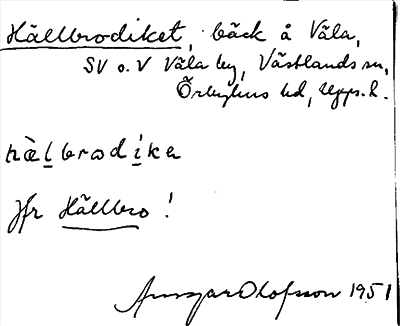 Hällbrodiket, bäck å Väla,
SV o. V Väla by, Västlands sn,
Örbyhus hd, Upps. l.
hä̀lbrodikə
Jfr Hällbro!
Ansgar Olofsson 1951